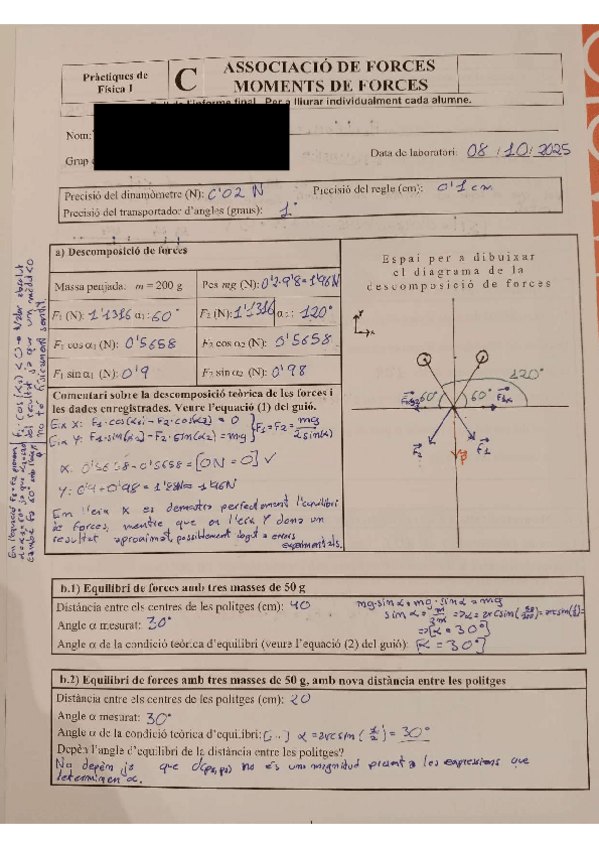 Pràctiques de
Física I
C
ASSOCIACIÓ DE FORCES
MOMENTS DE FORCES
l'informe final. Per a lliurar individualment cada alumne.
Nom:
Grup
Data de laboratori: 08 / 10 / 2025
Precisió del dinamòmetre (N): 0'02 N
Precisió del regle (cm): 0'1 cm
Precisió del transportador d'angles (graus): 1°
a) Descomposició de forces
Massa penjada: m = 200 g
Pes mg (N): 0'2·9'8=1'96N
F1 (N): 1'1316 α1: 60°
F2 (N): 1'1316 α2: 120°
F1 cos α1 (N): 0'5658
F2 cos α2 (N): 0'5658
F1 sin α1 (N): 0'9
F2 sin α2 (N): 0'98
Comentari sobre la descomposició teòrica de les forces i
les dades enregistrades. Veure l'equació (1) del guió.
Eix X: F1·cos(α1) - F2·cos(α2) = 0
Eix Y: F1·sin(α1) - F2·sin(α2) = mg
F1=F2= mg / 2sin(α)
X: 0'5658-0'5658 = [0N = 0] ✓
Y: 0'9+0'98 = 1'88N ≈ 1'96N
En l'eix X es demostra perfectament l'equilibri
de forces, mentre que en l'eix Y dona un
resultat aproximat, possiblement degut a errors
experimentals.
Espai per a dibuixar
el diagrama de la
descomposició de forces
y
x
120°
60°
60°
F2
F1
b.1) Equilibri de forces amb tres masses de 50 g
Distància entre els centres de les politges (cm): 40
mg·sin α + mg·sin α = mg
Angle α mesurat: 30°
=> [α = 30°]
Angle α de la condició teòrica d'equilibri (veure l'equació (2) del guió): [α = 30°]
b.2) Equilibri de forces amb tres masses de 50 g, amb nova distància entre les politges
Distància entre els centres de les politges (cm): 20
Angle α mesurat: 30°
Angle α de la condició teòrica d'equilibri: [...] α = arcsin(1/2) = 30°
Depèn l'angle d'equilibri de la distància entre les politges?
No depèn ja que d(p1,p2) no és una magnitud present a les expressions que
determinen α.